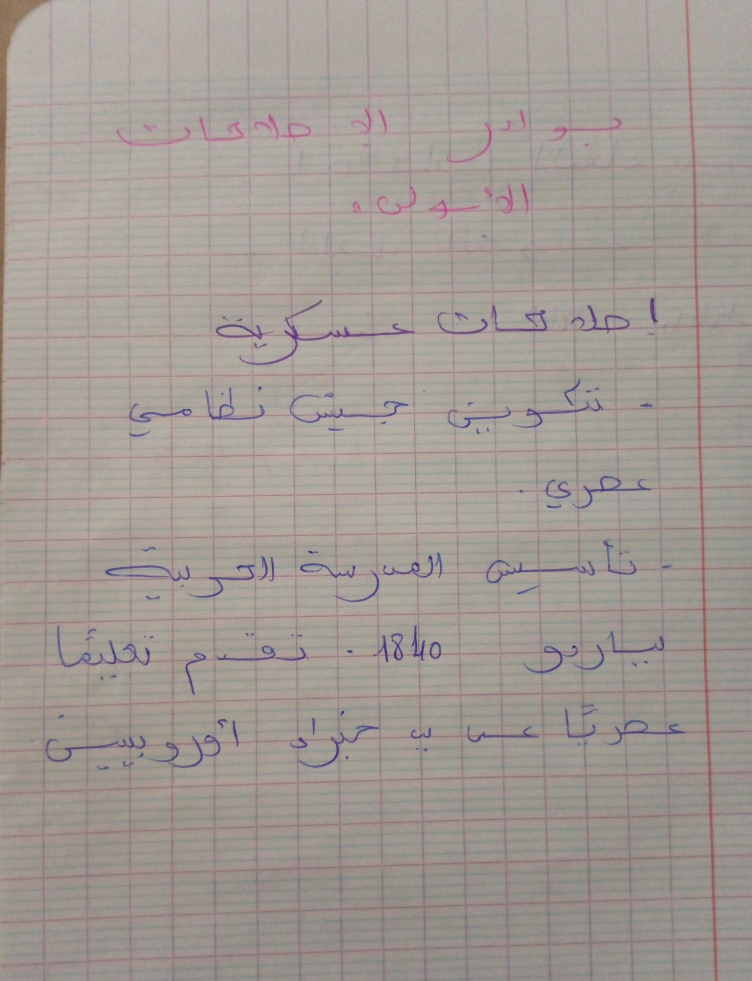 بوادر الإصلاحات
الأولى.
إصلاحات عسكرية
- تكوين جيش نظامي
عصري.
- تأسيس المدرسة الحربية
بباردو 1840. تقدم تعليمًا
عصريًا على يد خبراء أوروبيين